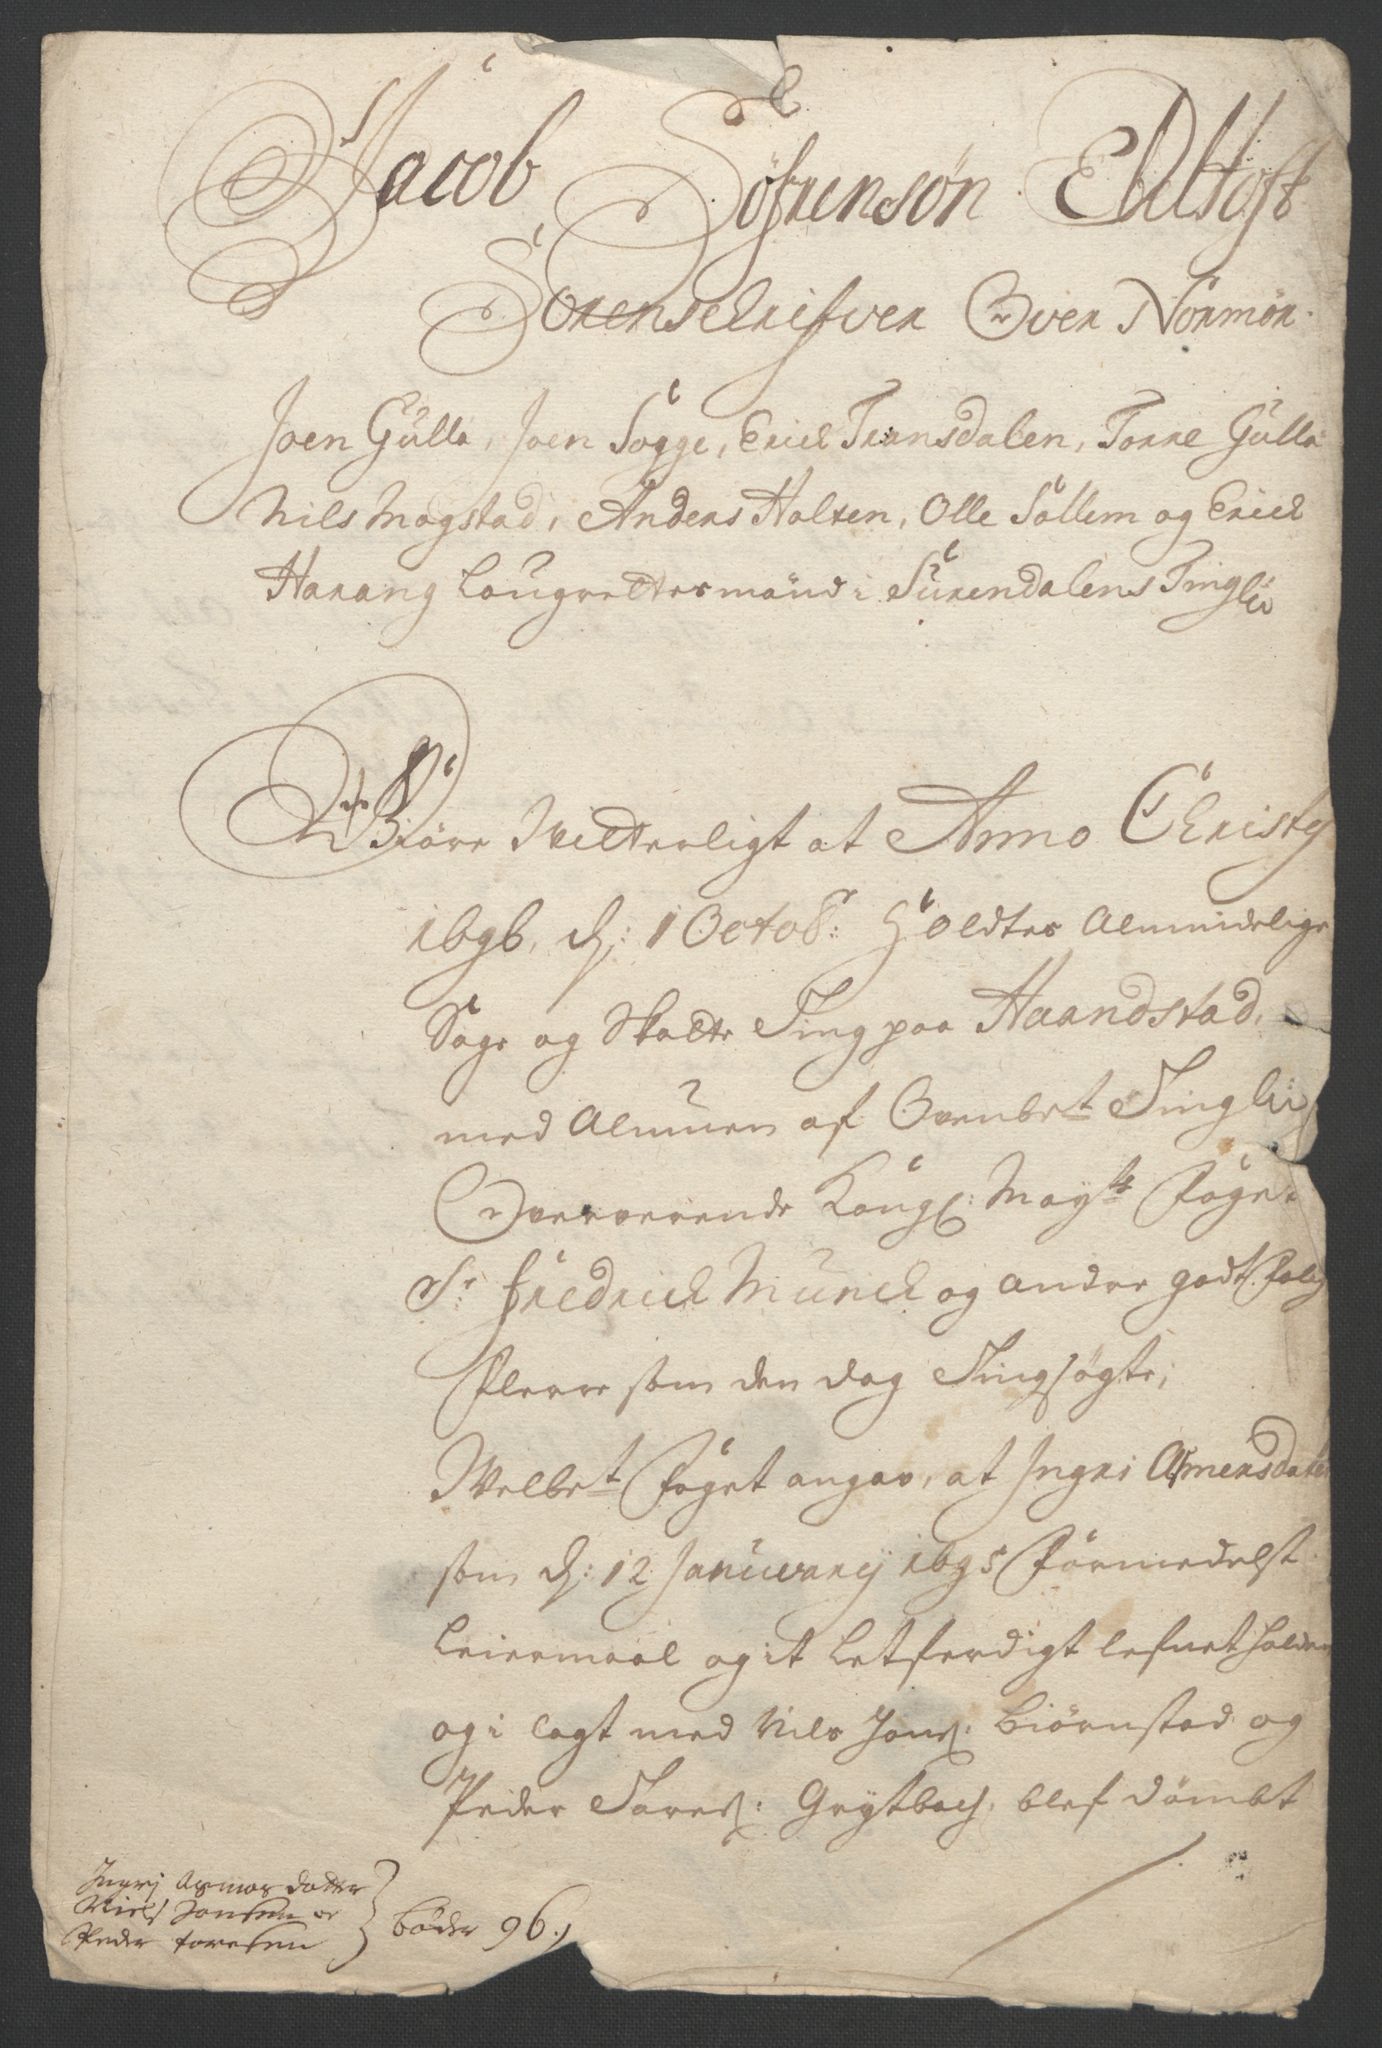 Jacob Søfrensøn Edeltoft
Sorenschrifver Over Normør
Joen Gulla, Joen Sogge, Erich Transdalen, Torre Gulla
Nils Mogstad, Anders Holten, Olle Sollem og Erich
Harang Laugrettesmænd i Surendalens Tinglau
Giøre Witterligt at Anno Christy
1696, d: 1 Octobr: Holdtes Almindelige
Sage og Skatte Ting paa Haandstad,
med Almuen af Ovenbet Tinglau
Oververende Kongl: Mayts Foget
Sr Fredrich Munch og andre godt folch
Fleere som den dag Tingsøgte;
Welbet Foget angav, at Ingri Asmersdater
som d: 12 Januarij 1695 Formedelst
Leiermaal og it Letferdigt lefnet holden
og i lagt med Nils Jons: Biørnstad og
Peder Tores: Grytbach: blef dømbt
Ingrj Asmos datter
Niels Jonsen oc
Peder toresen
bøder 96.